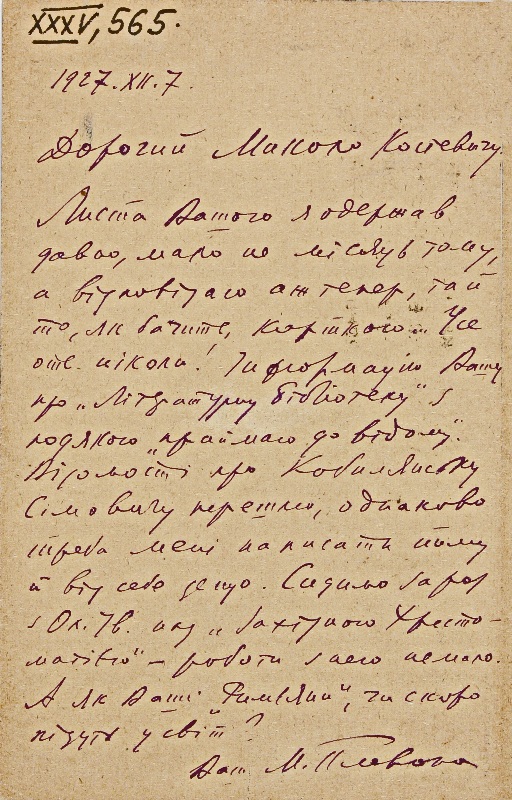 XXXV, 565.
1927.XII.7.
Дорогий Миколо Костевичу.
Листа Вашого я одержав
давно, мало не місяць тому,
а відповідаю аж тепер, та й
то, як бачите, карткою... Усе
оте ніколи! Інформацію Вашу
про „Літературну бібліотеку" з
подякою „приймаю до відому".
Відомості про Кобилянську
Сімовичу перешлю, однаково
треба мені написати йому
й від себе дещо. Сидимо зараз
з Ол. Ів. над „Західною Хресто-
матією" – роботи з нею немало.
А як Ваші „Римляни", чи скоро
підуть у світ?
Ваш М. Плевако